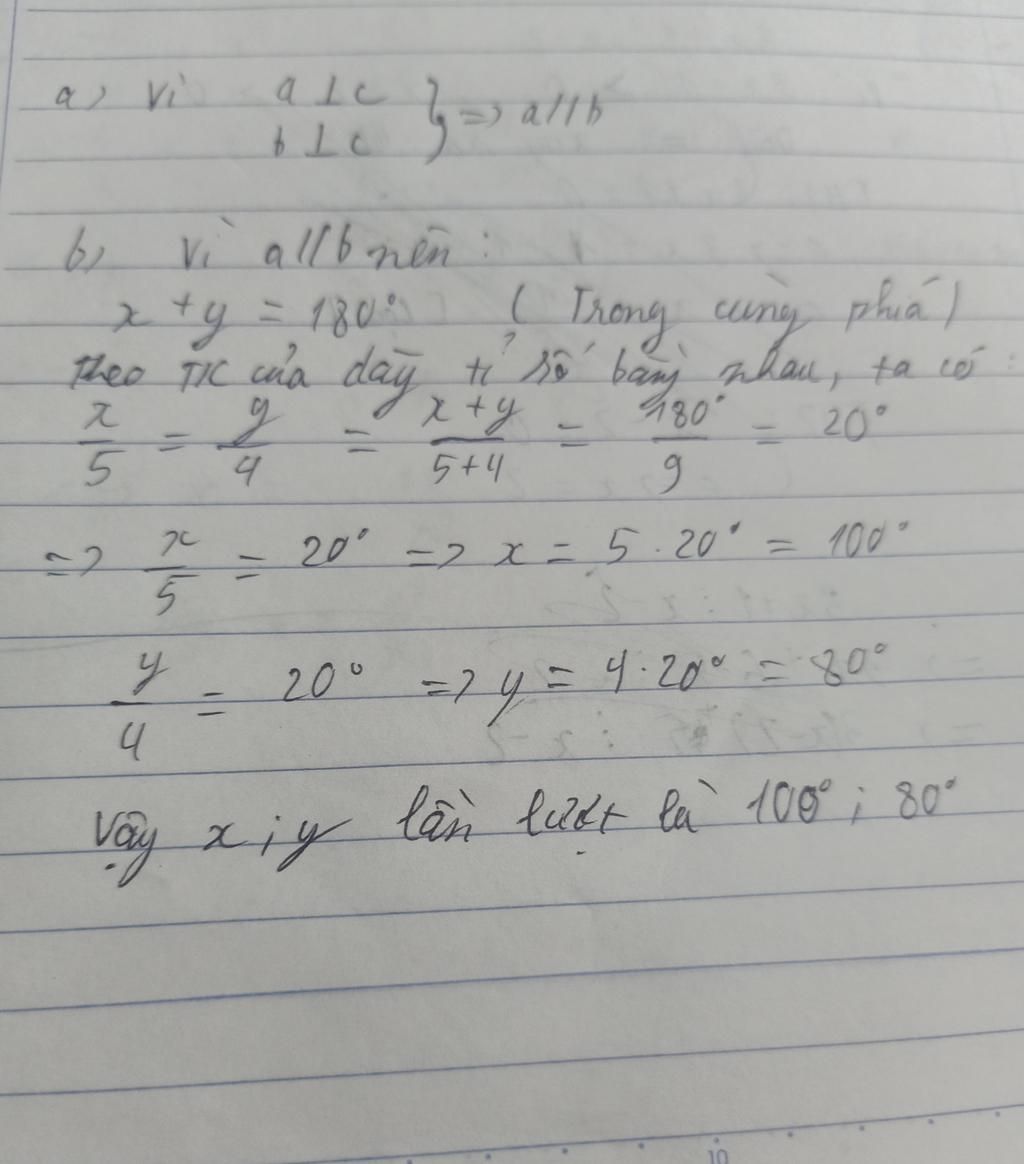 a) Vì a ⊥ c } => a // b
b ⊥ c
b) Vì a // b nên :
x + y = 180° ( Trong cùng phía )
theo TC của dãy tỉ số bằng nhau, ta có :
x/5 = y/4 = x + y/5+4 = 180°/9 = 20°
=> x/5 = 20° => x = 5 . 20° = 100°
y/4 = 20° => y = 4 . 20° = 80°
Vậy x ; y lần lượt là 100° ; 80°
10